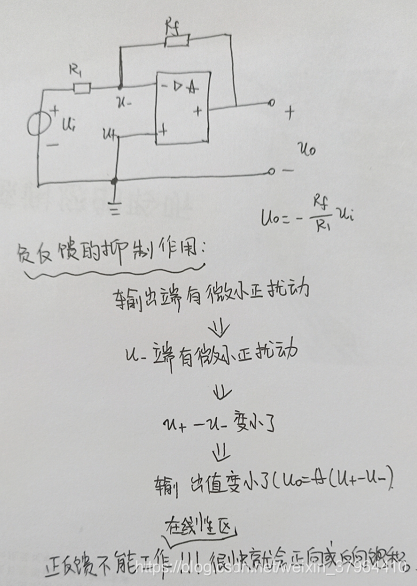 Rf
R1
u-
- ▷ A
+
+
ui
-
u+
+
+
uo
-
uo = - Rf/R1 ui
负反馈的抑制作用:
输出端有微小正扰动
⇓
u- 端有微小正扰动
⇓
u+ - u- 变小了
⇓
输出值变小了(uo=A(u+-u-)
在线性区
正反馈不能工作!!! 很快就会正向或反向饱和
https://blog.csdn.net/weixin_37964410